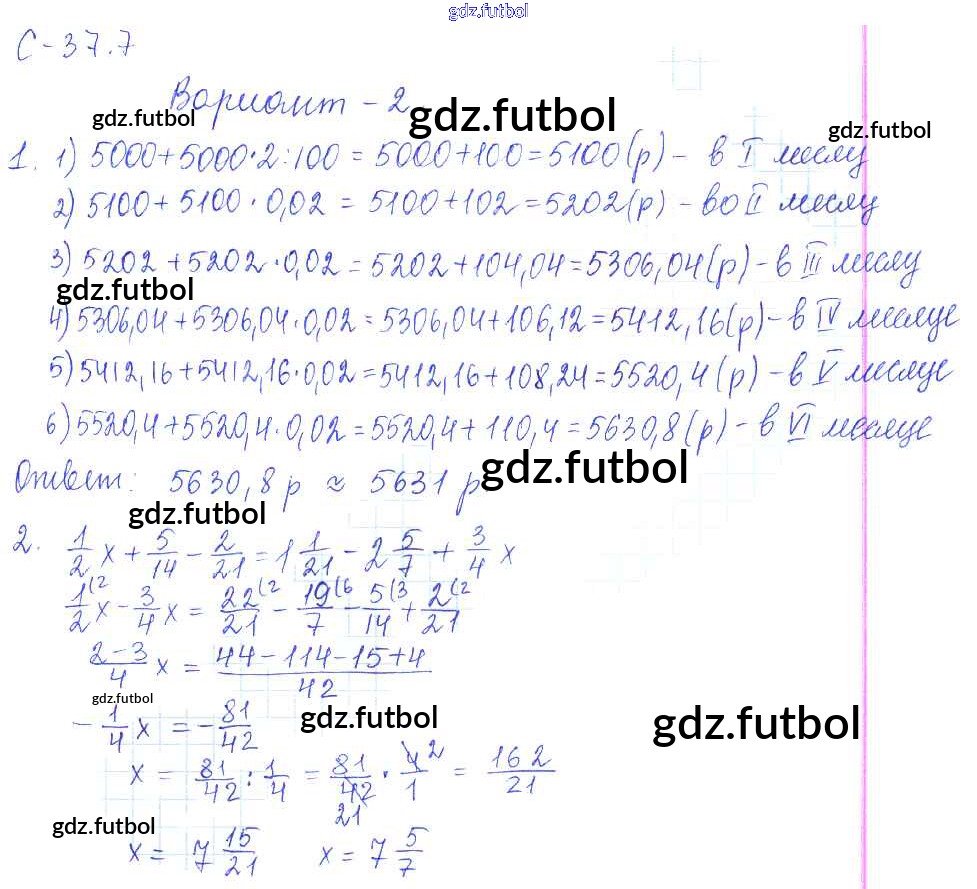 gdz.futbol
С-37.7
Вариант - 2
gdz.futbol gdz.futbol gdz.futbol
1. 1) 5000+5000·2:100 = 5000+100=5100(р) - в I месяцу
2) 5100+5100·0,02 = 5100+102=5202(р) - во II месяцу
3) 5202+5202·0,02=5202+104,04=5306,04(р) - в III месяцу
gdz.futbol
4) 5306,04+5306,04·0,02=5306,04+106,12=5412,16(р) - в IV месяце
5) 5412,16+5412,16·0,02=5412,16+108,24=5520,4(р) - в V месяце
6) 5520,4+5520,4·0,02=5520,4+110,4=5630,8(р) - в VI месяце
Ответ: 5630,8 р ≈ 5631 р
gdz.futbol
gdz.futbol
2. 1/2 x + 5/14 - 2/21 = 1 1/21 - 2 5/7 + 3/4 x
1/2(2 x - 3/4 x = 22/21(2 - 19/7(6 - 5/14(3 + 2/21(2
2-3/4 x = 44-114-15+4/42
gdz.futbol
- 1/4 x = - 81/42
gdz.futbol gdz.futbol
x = 81/42 : 1/4 = 81/42 · 4/1 2 = 162/21
21
gdz.futbol
x = 7 15/21 x = 7 5/7